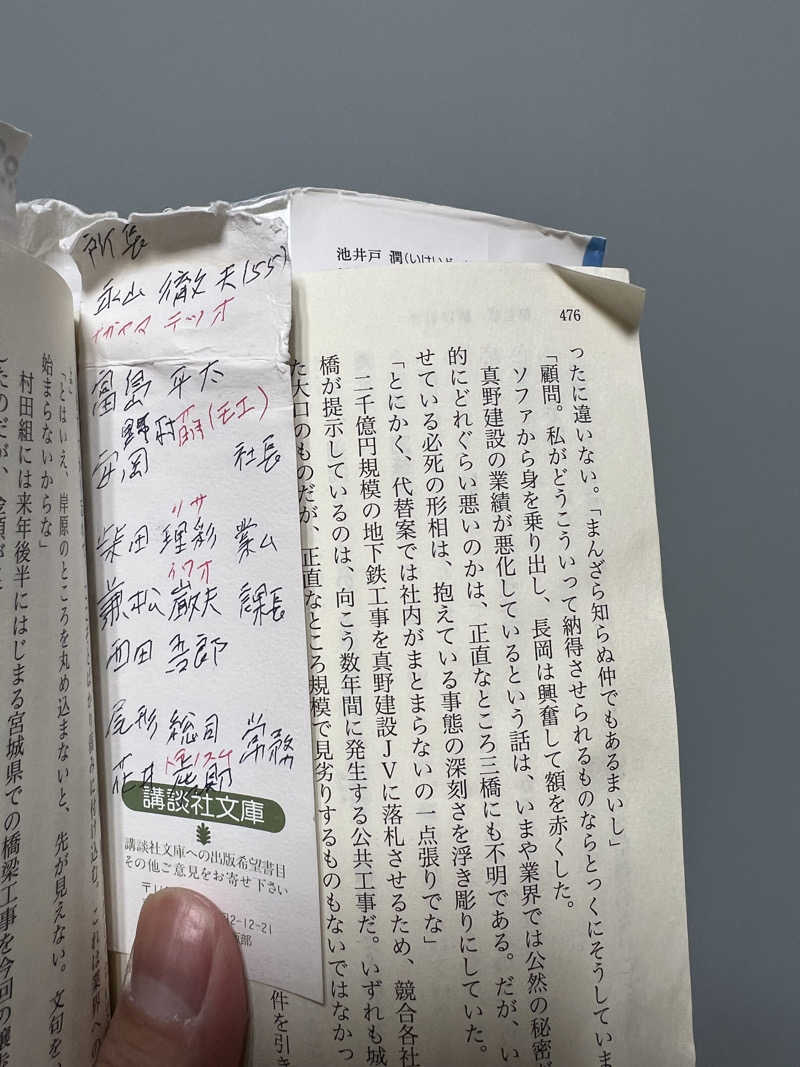 池井戸 潤(いけいど
476
ったに違いない。「まんざら知らぬ仲でもあるまいし」
「顧問。私がどうこういって納得させられるものならとっくにそうしていま
ソファから身を乗り出し、長岡は興奮して額を赤くした。
真野建設の業績が悪化しているという話は、いまや業界では公然の秘密だ
的にどれぐらい悪いのかは、正直なところ三橋にも不明である。だが、い
せている必死の形相は、抱えている事態の深刻さを浮き彫りにしていた。
「とにかく、代替案では社内がまとまらないの一点張りでな」
二千億円規模の地下鉄工事を真野建設JVに落札させるため、競合各社
橋が提示しているのは、向こう数年間に発生する公共工事だ。いずれも城
た大口のものだが、正直なところ規模で見劣りするものもないではなかっ
件を引き
永山 徹夫(55)
ナガヤマ テツオ
富島 平太
野村 萌(モエ)
安岡 社長
リサ
柴田 理彩 業ム
イワオ
兼松 巌夫 課長
西田 吾郎
尾形 総司 常務
花井
講談社文庫
講談社文庫への出版希望書目
その他ご意見をお寄せ下さい
2-12-21
「とはいえ、岸原のところを丸め込まないと、先が見えない。文句を
始まらないからな」
村田組には来年後半にはじまる宮城県での橋梁工事を今回の譲歩